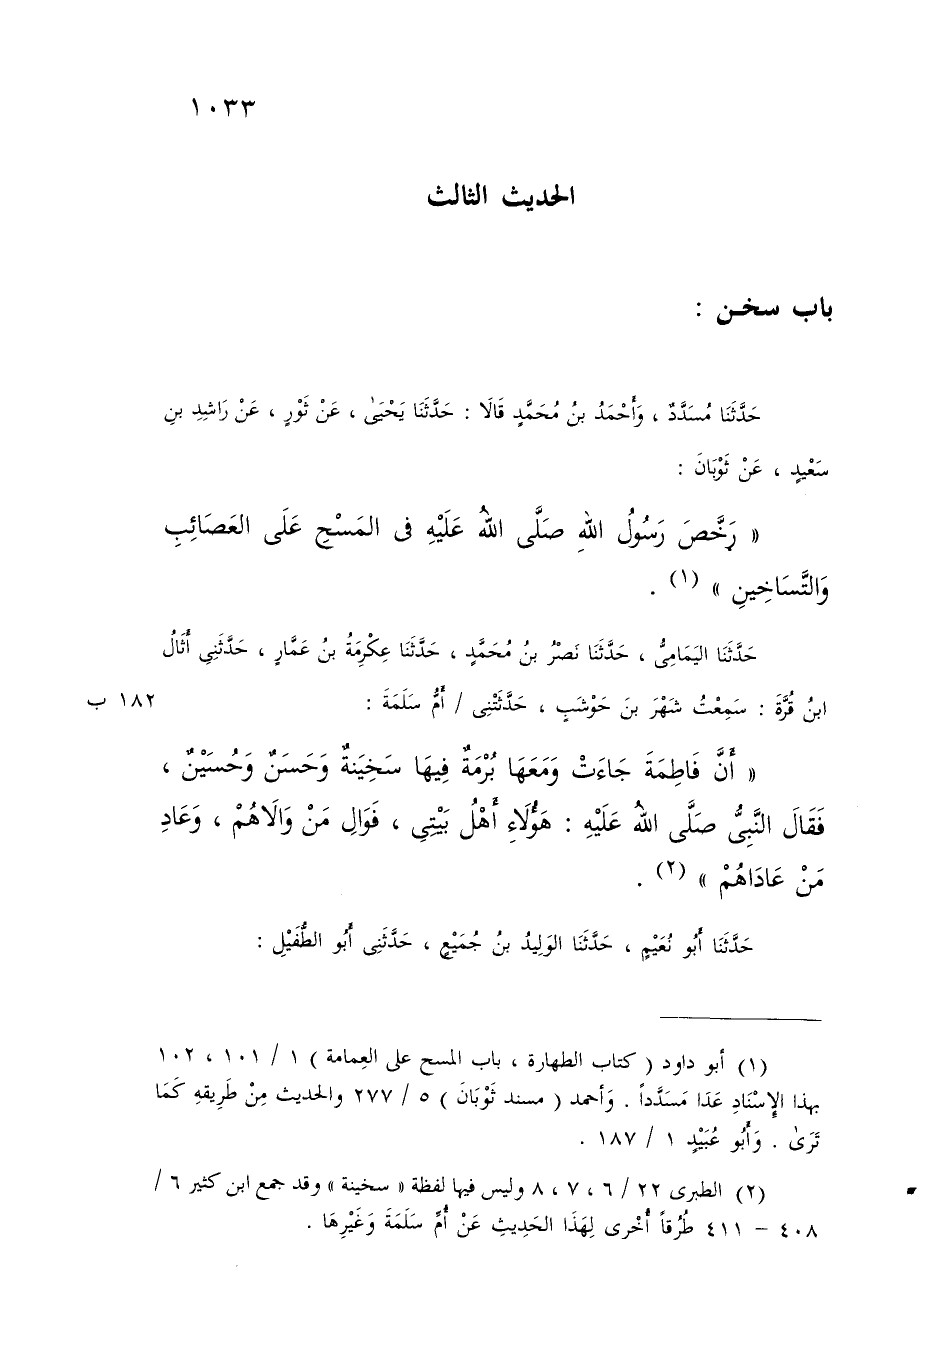 ١٠٣٣
الحديث الثالث
باب سخن :
حَدَّثَنَا مُسَدَّدٌ ، وَأَحْمَدُ بنُ مُحَمَّدٍ قَالَا : حَدَّثَنَا يَحْيَىٰ ، عَنْ ثَوْرٍ ، عَنْ رَاشِدِ بنِ
سَعِيْدٍ ، عَنْ ثَوْبَانَ :
« رَخَّصَ رَسُولُ اللهِ صَلَّى اللهُ عَلَيْهِ فى المَسْحِ عَلَى العَصَائِبِ
وَالتَّسَاخِينِ » (١) .
حَدَّثَنَا اليَمَامِىُّ ، حَدَّثَنَا نَصْرُ بنُ مُحَمَّدٍ ، حَدَّثَنَا عِكْرِمَةُ بنُ عَمَّارٍ ، حَدَّثَنِي أَثَالُ
ابنُ قُرَّةَ : سَمِعْتُ شَهْرَ بنَ حَوْشَبٍ ، حَدَّثَتْنِى / أُمُّ سَلَمَةَ : ١٨٢ ب
« أَنَّ فَاطِمَةَ جَاءَتْ وَمَعَهَا بُرْمَةٌ فِيهَا سَخِيَنةٌ وَحَسَنٌ وَحُسَيْنٌ ،
فَقَالَ النَّبِىُّ صَلَّى اللهُ عَلَيْهِ : هَؤُلَاءِ أَهْلُ بَيْتِي ، فَوَالِ مَنْ وَالَاهُمْ ، وَعَادِ
مَنْ عَادَاهُمْ » (٢) .
حَدَّثَنَا أَبُو نُعَيْمٍ ، حَدَّثَنَا الوَلِيدُ بنُ جُمَيْعٍ ، حَدَّثَنِى أَبُو الطُّفَيْلِ :
(١) أبو داود ( كتاب الطهارة ، باب المسح على العِمامة ) ١ / ١٠١ ، ١٠٢
بهذا الإِسْنَادِ عَدَا مَسَدَّداً . وَأحمد ( مسند ثَوْبَانَ ) ٥ / ٢٧٧ والحديث مِنْ طَرِيقهِ كَمَا
تَرَىٰ . وَأَبُو عُبَيْدٍ ١ / ١٨٧ .
(٢) الطبرى ٢٢ / ٦ ، ٧ ، ٨ وليس فيها لفظة « سخينة » وقد جمع ابن كثير ٦ /
٤٠٨ – ٤١١ طُرُقاً أُخْرى لِهَذَا الحَدِيثِ عَنْ أُمِّ سَلَمَةَ وَغَيْرِهَا .